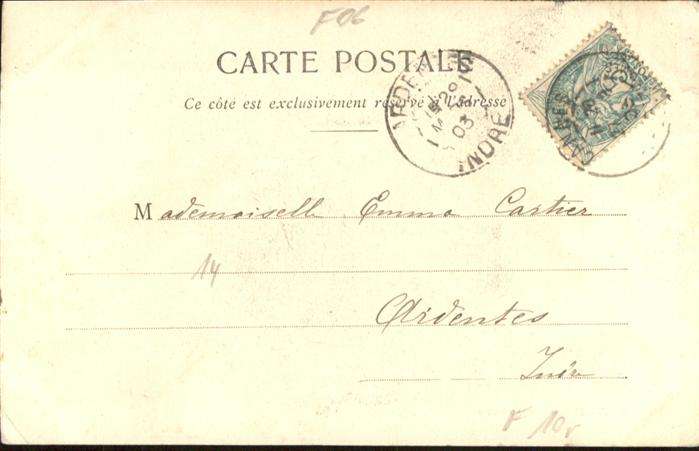 F06
CARTE POSTALE
Ce côté est exclusivement réservé à l'adresse
ARDENTES
29
03
INDRE
Mademoiselle Emma Cartier
14
Ardentes
Indre
F 10